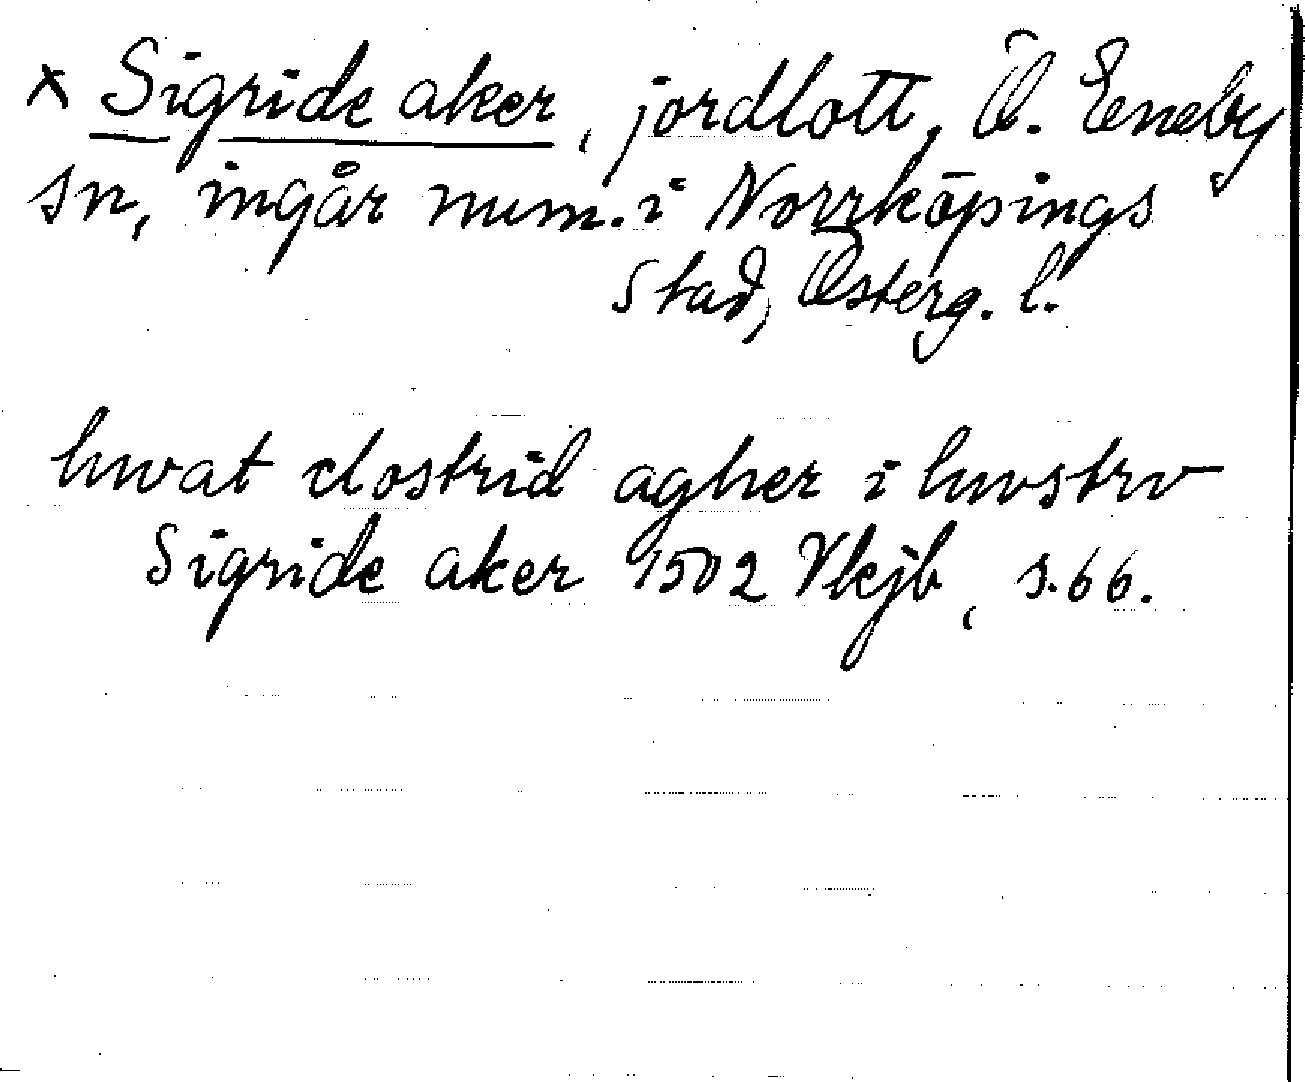 x Sigride aker, jordlott, Ö. Eneby
sn, ingår num. i Norrköpings
Stad, Österg. l.
hwat clostrid agher i hwstrv
Sigride aker 1502 Vkjb, s. 66.